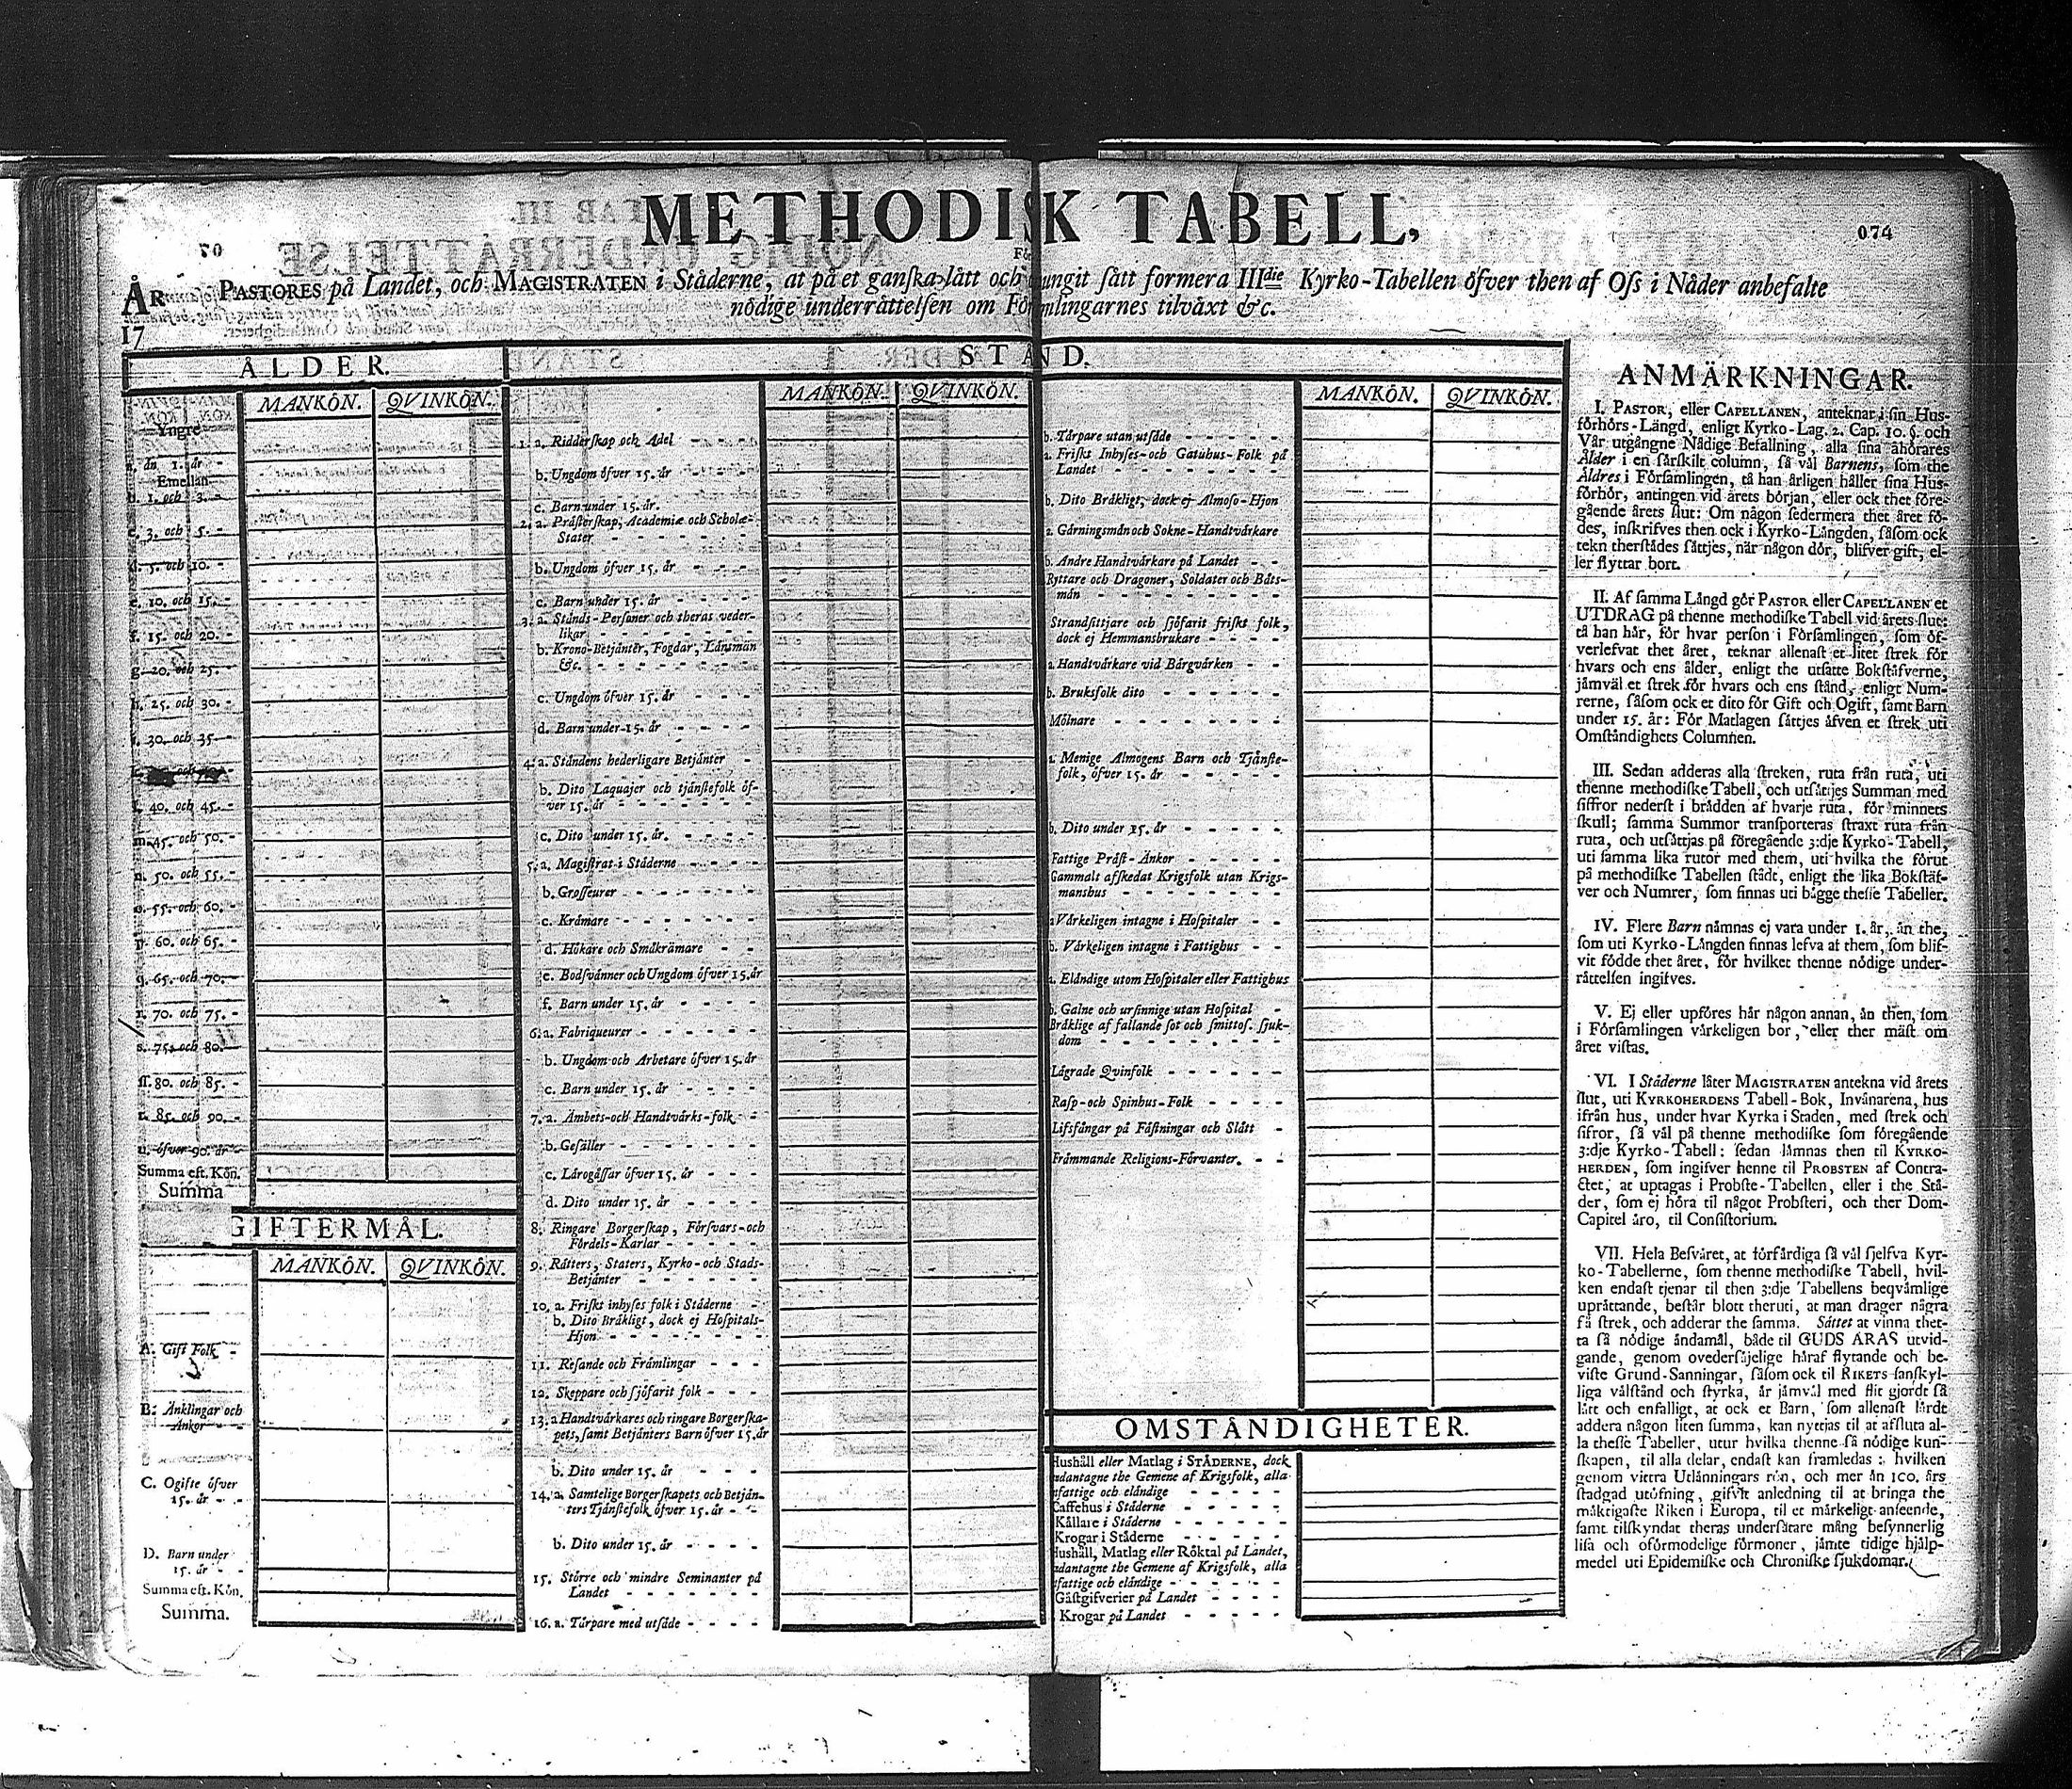 METHODISK TABELL,
074
ÅR PASTORES på Landet, och MAGISTRATEN i Ståderne, at på et ganſka lått och ungit ſått formera IIIdie Kyrko-Tabellen öfver then af Oſs i Nåder anbefalte
17
nödige underråttelſen om Förſamlingarnes tilvåxt &c.
ÅLDER.
MANKÖN. QVINKÖN.
Yngre
a. ån 1. år -
Emellan
b. 1. och 3. -
c. 3. och 5. -
d. 5. och 10. -
e. 10. och 15. -
f. 15. och 20. -
g. 20. och 25. -
h. 25. och 30. -
i. 30. och 35 -
l. 40. och 45. -
m. 45. och 50. -
n. 50. och 55. -
o. 55. och 60. -
p. 60. och 65. -
q. 65. och 70. -
r. 70. och 75. -
s. 75. och 80. -
ſſ. 80. och 85. -
t. 85. och 90. -
u. öfver 90. år -
Summa eft. Kön.
Summa
GIFTERMÅL.
MANKÖN. QVINKÖN.
A. Gift Folk -
B. Änklingar och
Ånkor - -
C. Ogifte öfver
15. år - -
D. Barn under
15. år - -
Summa eft. Kön.
Summa.
STÅND.
MANKÖN. QVINKÖN.
1. a. Ridderſkap och Adel - - - -
b. Ungdom öfver 15. år - - - -
c. Barn under 15. år.
2. a. Pråſterſkap, Academiæ och Scholæ-
Stater - - - - - -
b. Ungdom öfver 15. år - - - -
c. Barn under 15. år - - - -
3. a. Stånds-Perſoner och theras veder-
likar - - - - - -
b. Krono-Betjånter, Fogdar, Lånsmån
&c. - - - - - -
c. Ungdom öfver 15. år - - - -
d. Barn under 15. år - - - -
4. a. Ståndens hederligare Betjånter -
b. Dito Laquajer och tjånſtefolk öf-
ver 15. år - - - - - -
c. Dito under 15. år. - - - -
5. a. Magiſtrat i Ståderne - - - -
b. Groſſeurer - - - - - -
c. Kråmare - - - - - -
d. Hökare och Småkråmare - -
e. Bodſvånner och Ungdom öfver 15. år
f. Barn under 15. år - - - -
6. a. Fabriqueurer - - - - -
b. Ungdom och Arbetare öfver 15. år
c. Barn under 15. år - - - -
7. a. Ämbets-och Handtvårks-folk - -
b. Geſåller - - - - - -
c. Lårogåſſar öfver 15. år - - -
d. Dito under 15. år - - - -
8. Ringare Borgerſkap, Förſvars-och
Fördels-Karlar - - - - -
9. Råtters, Staters, Kyrko-och Stads-
Betjånter - - - - - -
10. a. Friſkt inhyſes folk i Ståderne -
b. Dito Bråkligt, dock ej Hoſpitals-
Hjon - - - - - -
11. Reſande och Fråmlingar - - -
12. Skeppare och ſjöfarit folk - - -
13. a Handtvårkares och ringare Borgerſka-
pets, ſamt Betjånters Barn öfver 15. år
b. Dito under 15. år - - -
14. a. Samtelige Borgerſkapets och Betjån-
ters Tjånſtefolk öfver 15. år - -
b. Dito under 15. år - - - -
15. Större och mindre Seminanter på
Landet - - - - - -
16. a. Tårpare med utſåde - - - -
MANKÖN. QVINKÖN.
b. Tårpare utan utſåde - - - - -
a. Friſkt Inhyſes-och Gatuhus-Folk på
Landet - - - - - -
b. Dito Bråkligt, dock ej Almoſo-Hjon
a. Gårningsmån och Sokne-Handtvårkare
b. Andre Handtvårkare på Landet - -
Ryttare och Dragoner, Soldater och Båts-
mån - - - - - -
Strandſittjare och ſjöfarit friſkt folk,
dock ej Hemmansbrukare - - -
a. Handtvårkare vid Bårgvårken - -
b. Bruksfolk dito - - - - -
Mölnare - - - - - -
a. Menige Almogens Barn och Tjånſte-
folk, öfver 15. år - - - -
b. Dito under 15. år - - - -
Fattige Pråſt-Änkor - - - -
Gammalt afſkedat Krigsfolk utan Krigs-
manshus - - - - - -
a Vårkeligen intagne i Hoſpitaler - -
b. Vårkeligen intagne i Fattighus - -
a. Elåndige utom Hoſpitaler eller Fattighus
b. Galne och urſinnige utan Hoſpital -
Bråklige af fallande ſot och ſmittoſ. ſjuk-
dom - - - - - -
Lågrade Qvinfolk - - - - -
Raſp-och Spinhus-Folk - - - -
Lifsfångar på Fåſtningar och Slått -
Fråmmande Religions-Förvanter. - -
OMSTÅNDIGHETER.
Hushåll eller Matlag i STÅDERNE, dock
undantagne the Gemene af Krigsfolk, alla
utfattige och elåndige - - - - -
Caffehus i Ståderne - - - - -
Kållare i Ståderne - - - - -
Krogar i Ståderne - - - - -
Hushåll, Matlag eller Röktal på Landet,
undantagne the Gemene af Krigsfolk, alla
utfattige och elåndige - - - - -
Gåſtgifverier på Landet - - - -
Krogar på Landet - - - - -
ANMÄRKNINGAR.
I. PASTOR, eller CAPELLANEN, anteknar i ſin Hus-
förhörs-Långd, enligt Kyrko-Lag. 2. Cap. 10. §. och
Vår utgångne Nådige Befallning, alla ſina åhörares
Ålder i en ſårſkilt column, ſå vål Barnens, ſom the
Åldres i Förſamlingen, tå han årligen håller ſina Hus-
förhör, antingen vid årets början, eller ock thet före-
gående årets ſlut: Om någon ſedermera thet året fö-
des, inſkrifves then ock i Kyrko-Långden, ſåſom ock
tekn therſtådes ſåttjes, når någon dör, blifver gift, el-
ler flyttar bort.
II. Af ſamma Långd gör PASTOR eller CAPELLANEN et
UTDRAG på thenne methodiſke Tabell vid årets ſlut:
tå han hår, för hvar perſon i Förſamlingen, ſom öf-
verlefvat thet året, teknar allenaſt et litet ſtrek för
hvars och ens ålder, enligt the utſatte Bokſtåfverne,
jåmvål et ſtrek för hvars och ens ſtånd, enligt Num-
rerne, ſåſom ock et dito för Gift och Ogift, ſamt Barn
under 15. år: För Matlagen ſåttjes åfven et ſtrek uti
Omſtåndighets Columnen.
III. Sedan adderas alla ſtreken, ruta från ruta, uti
thenne methodiſke Tabell, och utſåttjes Summan med
ſiffror nederſt i brådden af hvarje ruta, för minnets
ſkull; ſamma Summor tranſporteras ſtraxt ruta från
ruta, och utſåttjas på föregående 3:dje Kyrko-Tabell,
uti ſamma lika rutor med them, uti hvilka the förut
på methodiſke Tabellen ſtådt, enligt the lika Bokſtåf-
ver och Numrer, ſom finnas uti bågge theſſe Tabeller.
IV. Flere Barn nåmnas ej vara under 1. år, ån the,
ſom uti Kyrko-Långden finnas lefva af them, ſom blif-
vit födde thet året, för hvilket thenne nödige under-
råttelſen ingifves.
V. Ej eller upföres hår någon annan, ån then, ſom
i Förſamlingen vårkeligen bor, eller ther måſt om
året viſtas.
VI. I Ståderne låter MAGISTRATEN antekna vid årets
ſlut, uti KYRKOHERDENS Tabell-Bok, Invånarena, hus
ifrån hus, under hvar Kyrka i Staden, med ſtrek och
ſifror, ſå vål på thenne methodiſke ſom föregående
3:dje Kyrko-Tabell: ſedan låmnas then til KYRKO-
HERDEN, ſom ingifver henne til PROBSTEN af Contra-
ctet, at uptagas i Probſte-Tabellen, eller i the Stå-
der, ſom ej höra til något Probſteri, och ther Dom-
Capitel åro, til Conſiſtorium.
VII. Hela Beſvåret, at förfårdiga ſå vål ſjelfva Kyr-
ko-Tabellerne, ſom thenne methodiſke Tabell, hvil-
ken endaſt tjenar til then 3:dje Tabellens beqvåmlige
upråttande, beſtår blott theruti, at man drager några
få ſtrek, och adderar the ſamma. Såttet at vinna thet-
ta ſå nödige åndamål, både til GUDS ÅRAS utvid-
gande, genom ovederſåjelige håraf flytande och be-
viſte Grund-Sanningar, ſåſom ock til RIKETS ſanſkyl-
liga vålſtånd och ſtyrka, år jåmvål med flit gjordt ſå
lått och enfalligt, at ock et Barn, ſom allenaſt lårdt
addera någon liten ſumma, kan nyttjas til at afſluta al-
la theſſe Tabeller, utur hvilka thenne ſå nödige kun-
ſkapen, til alla delar, endaſt kan framledas: hvilken
genom vittra Utlånningars rön, och mer ån 100. års
ſtadgad utöfning, gifvit anledning til at bringa the
måktigaſte Riken i Europa, til et mårkeligt anſeende,
ſamt tilſkyndat theras underſåtare mång beſynnerlig
liſa och oförmodelige förmoner, jåmte tidige hjålp-
medel uti Epidemiſke och Chroniſke ſjukdomar.